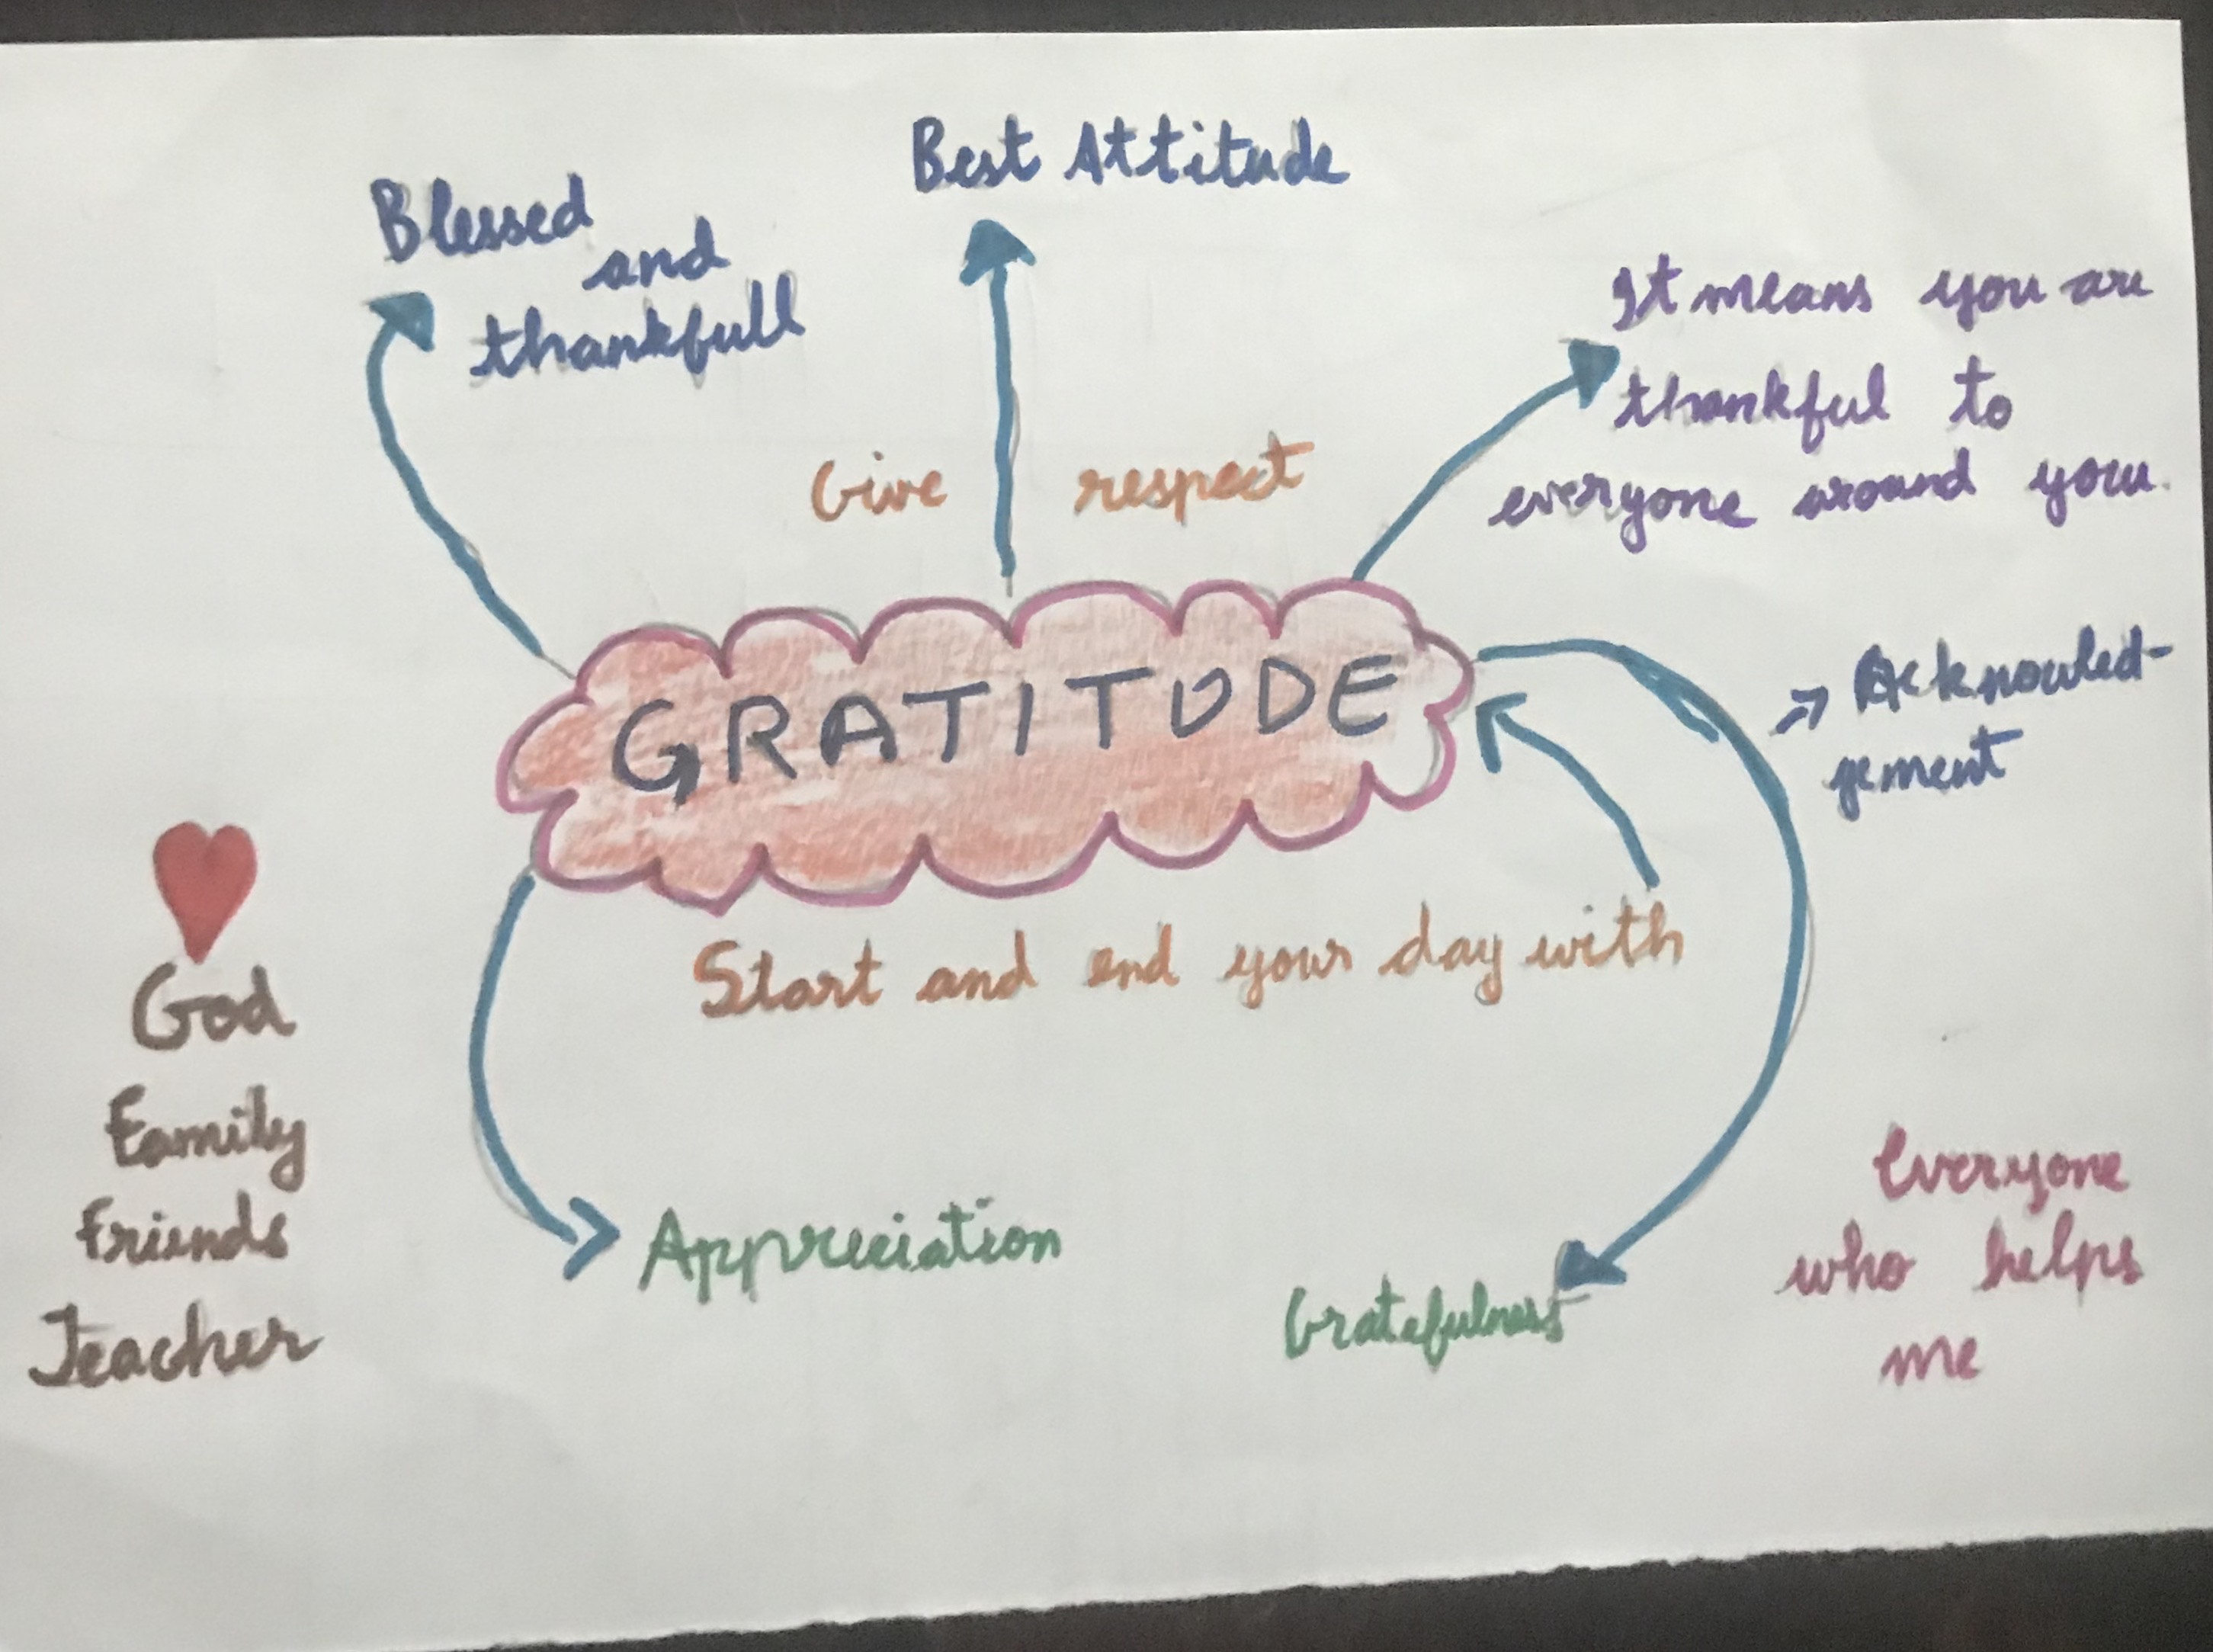 Best Attitude
Blessed
and
thankfull
It means you are
thankful to
everyone around you.
Give respect
GRATITUDE
Acknowled-
gement
Start and end your day with
God
Family
Friends
Teacher
Appreciation
Gratefulness
Everyone
who helps
me